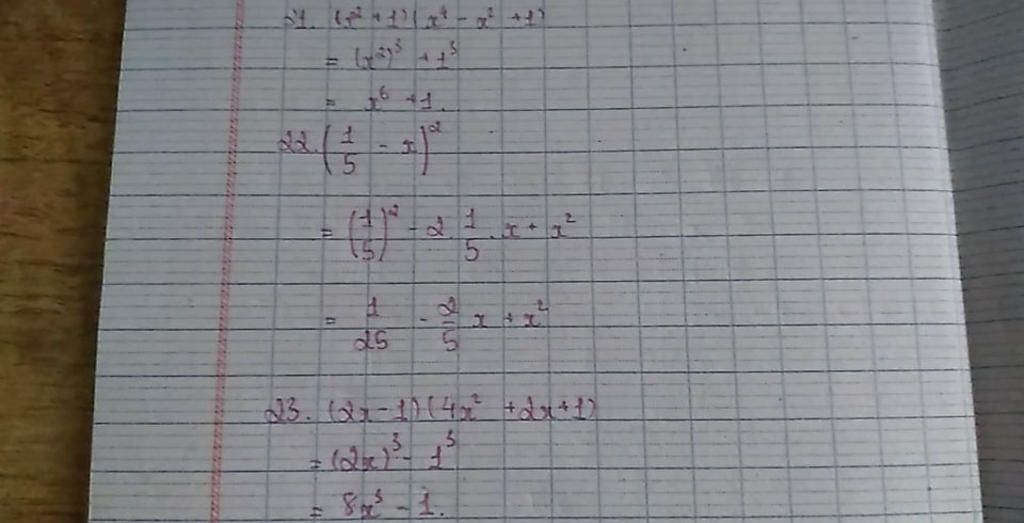 21. (x² + 1)(x⁴ - x² + 1)
= (x²)³ + 1³
= x⁶ + 1.
22. (1/5 - x)²
= (1/5)² - 2 1/5 . x + x²
= 1/25 - 2/5 x + x²
23. (2x - 1)(4x² + 2x + 1)
= (2x)³ - 1³
= 8x³ - 1.